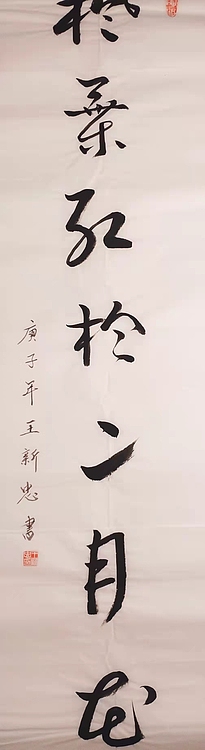 枫葉红於二月花
庚子年王新忠書